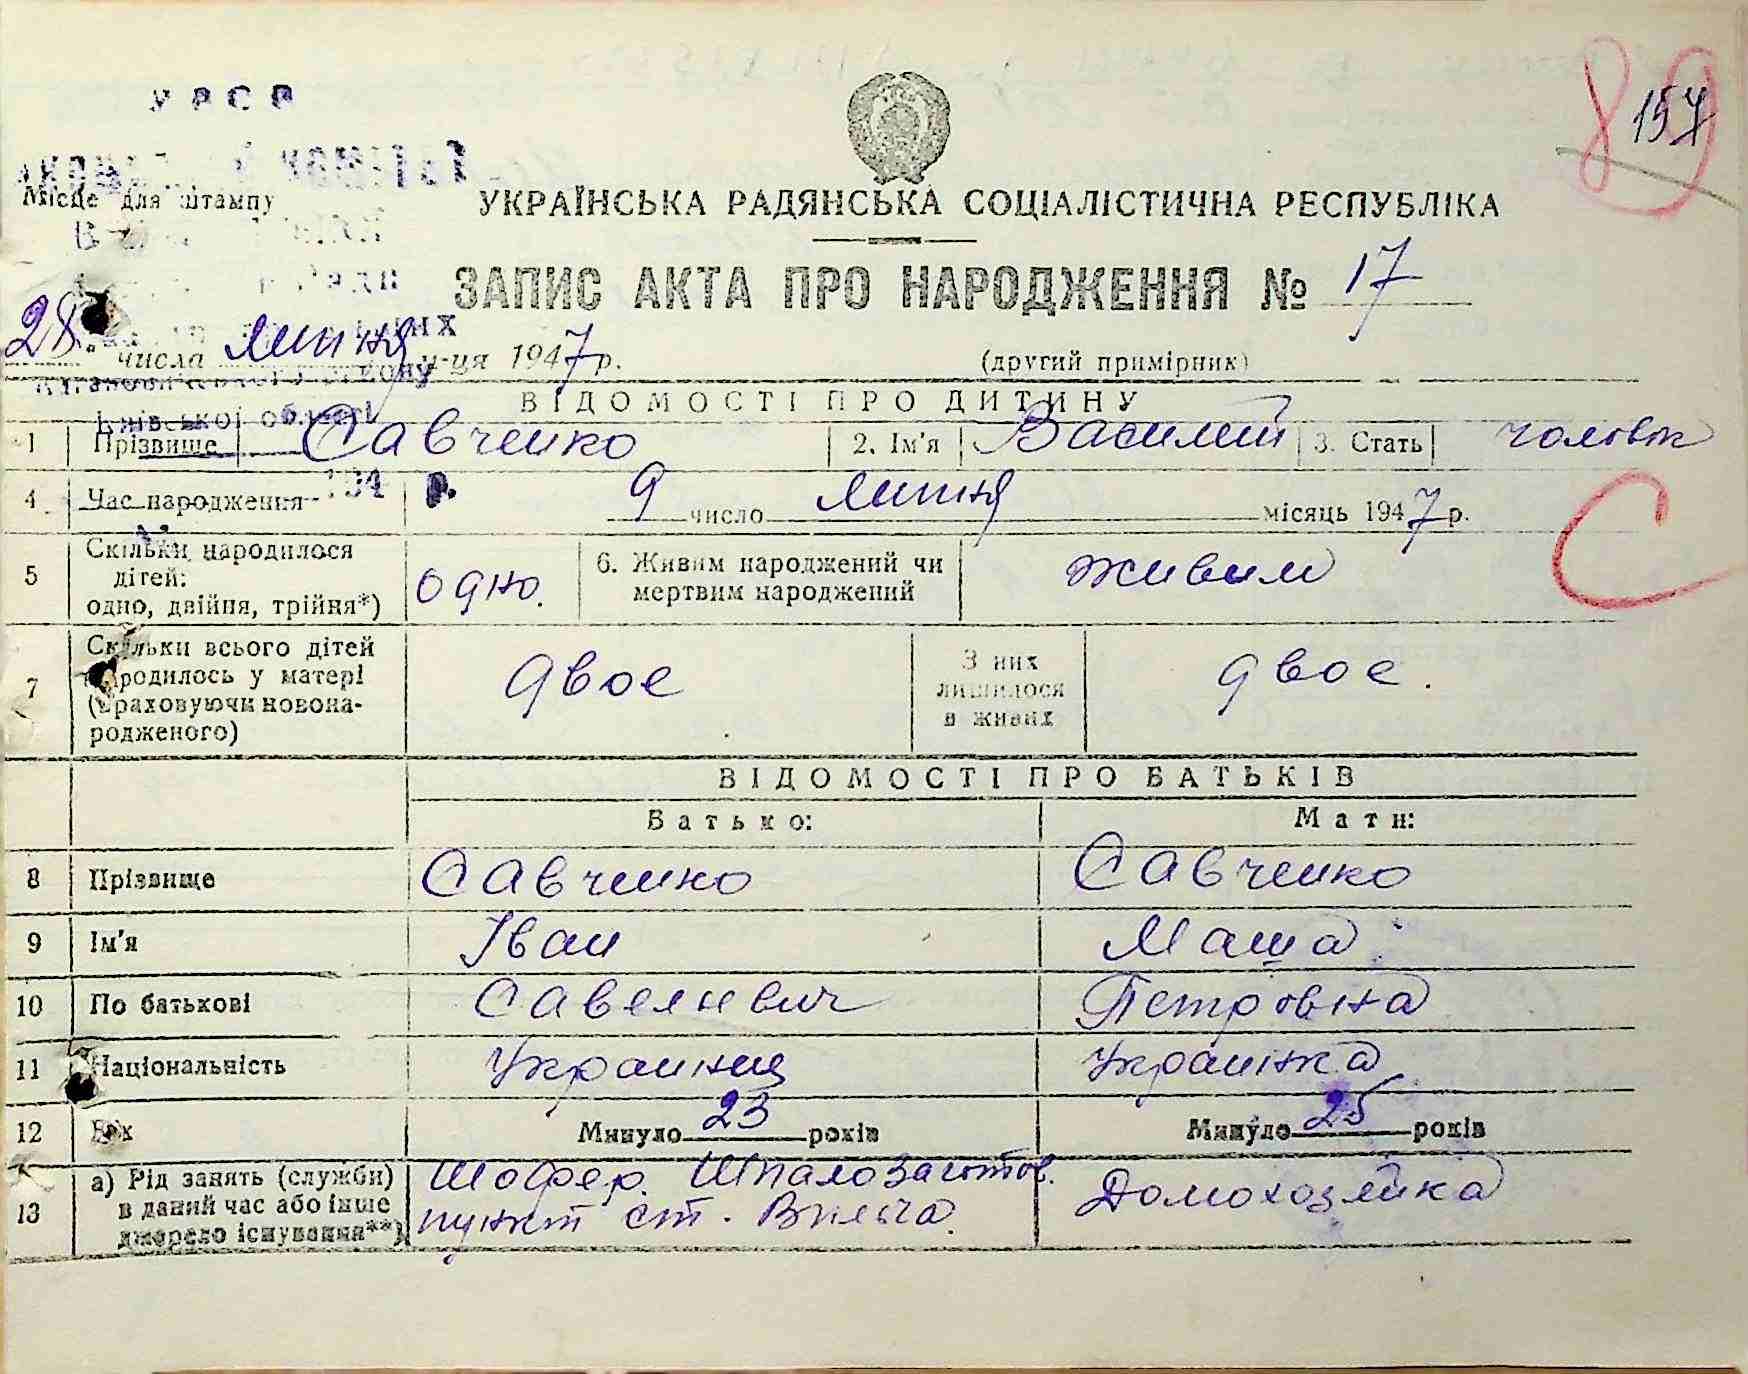 УРСР
Місце для штампу
157
89
УКРАЇНСЬКА РАДЯНСЬКА СОЦІАЛІСТИЧНА РЕСПУБЛІКА
ЗАПИС АКТА ПРО НАРОДЖЕННЯ № 17
28 числа липня м-ця 1947 р. (другий примірник)
області
ВІДОМОСТІ ПРО ДИТИНУ
1 Прізвище Савченко 2. Ім'я Василий 3. Стать чоловік
4 Час народження 9 число липня місяць 1947 р.
194 р.
С
5 Скільки народилося дітей: одно, двійня, трійня*) одно. 6. Живим народжений чи мертвим народжений живим
7 Скільки всього дітей народилось у матері (враховуючи новонародженого) двое З них лишилося в живих двое.
ВІДОМОСТІ ПРО БАТЬКІВ
Батько: Мати:
8 Прізвище Савченко Савченко
9 Ім'я Іван Маша
10 По батькові Савелиевич Петровна
11 Національність Украинец Украинка
12 Вік Минуло 23 років Минуло 25 років
13 а) Рід занять (служби) в даний час або інше джерело існування**) Шофер. Шпалозаготов. пункт ст. Вильча. Домохозяйка